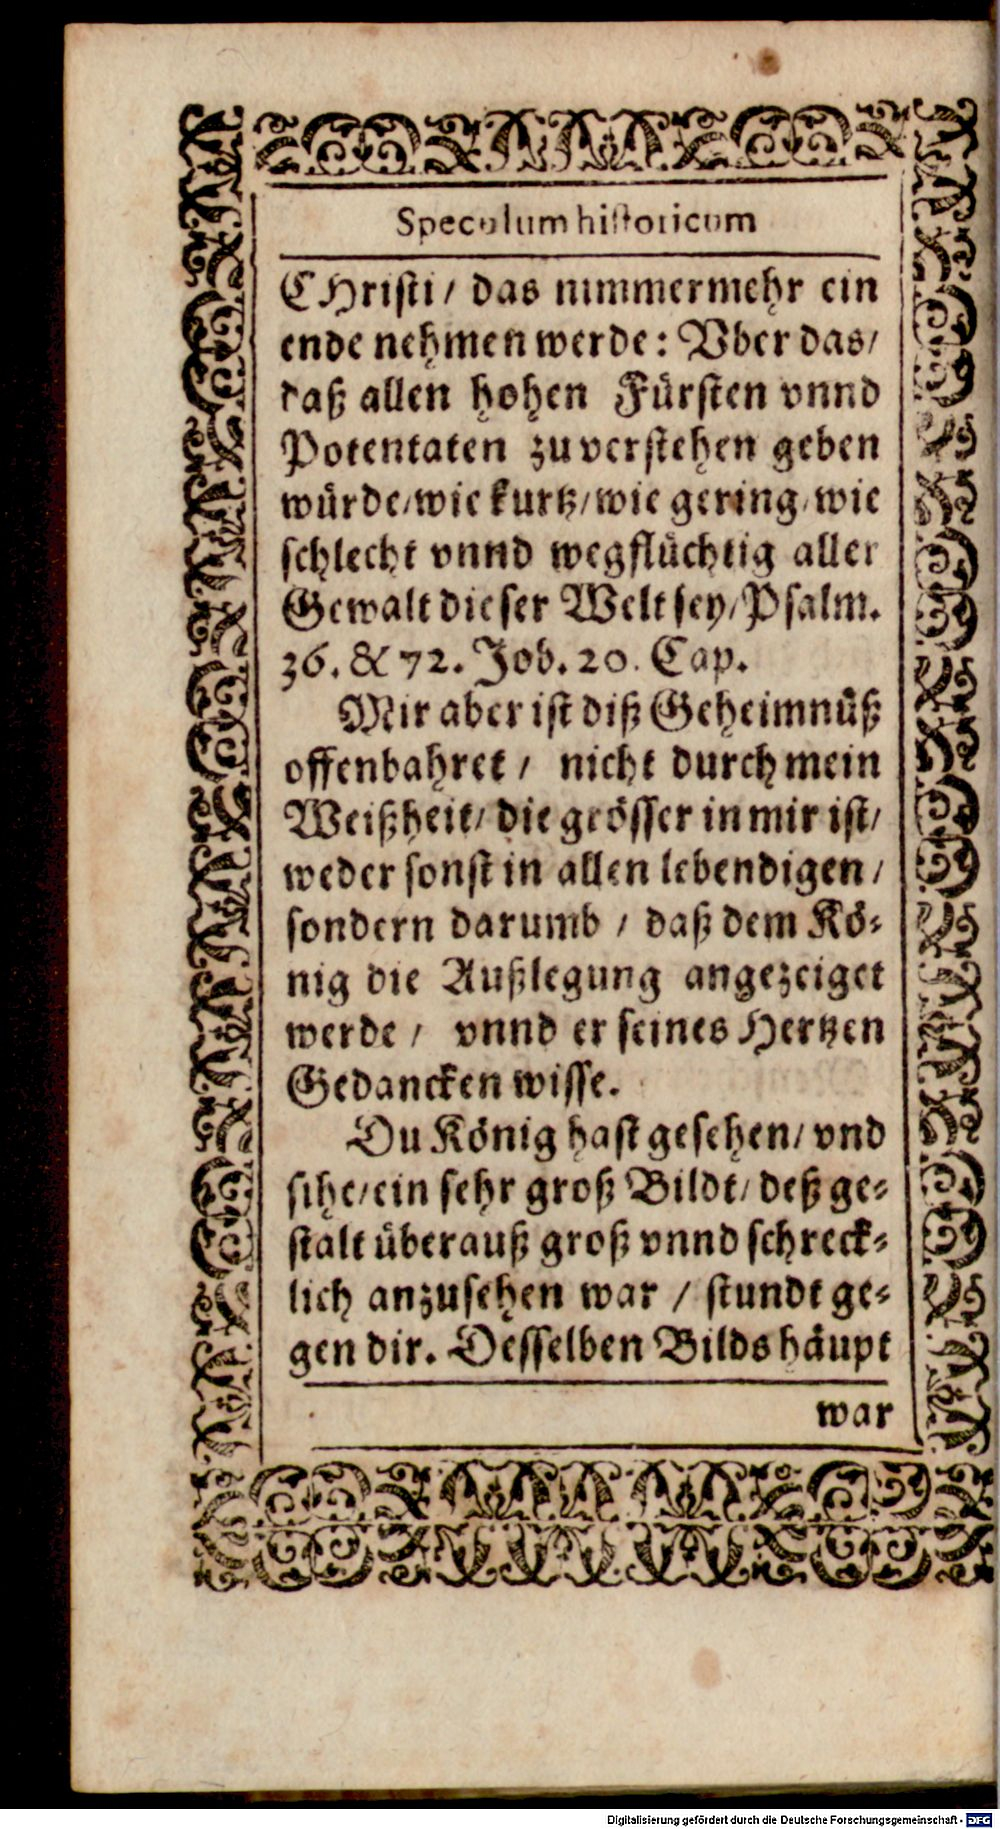 Speculum historicum
CHristi/ das nimmermehr ein
ende nehmen werde: Vber das/
daß allen hohen Fürsten vnnd
Potentaten zu verstehen geben
würde/wie kurtz/wie gering/wie
schlecht vnnd wegflüchtig aller
Gewalt dieser Welt sey/Psalm.
36. & 72. Job. 20. Cap.
Mir aber ist diß Geheimnüß
offenbahret / nicht durch mein
Weißheit/ die grösser in mir ist/
weder sonst in allen lebendigen /
sondern darumb / daß dem Kö-
nig die Außlegung angezeiget
werde / vnnd er seines Hertzen
Gedancken wisse.
Du König hast gesehen/ vnd
sihe/ein sehr groß Bildt/ deß ge-
stalt überauß groß vnnd schreck-
lich anzusehen war / stundt ge-
gen dir. Desselben Bilds häupt
war
Digitalisierung gefördert durch die Deutsche Forschungsgemeinschaft - DFG